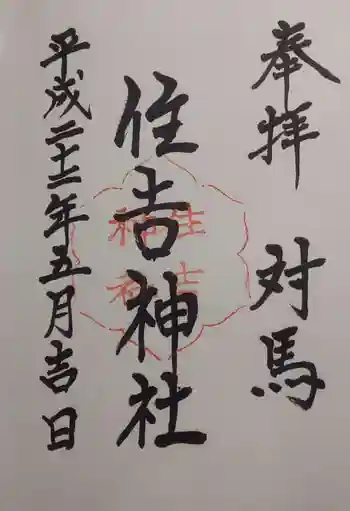 奉拝 対馬
住吉神社
平成二十二年五月吉日
住吉
神社